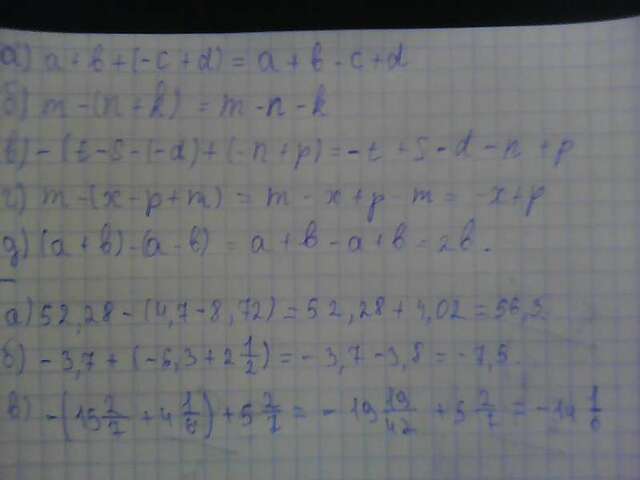 а) a + b + (-c + d) = a + b - c + d
б) m - (n + k) = m - n - k
в) - (t - s - (-d) + (-n + p) = -t + s - d - n + p
г) m - (x - p + m) = m - x + p - m = -x + p
д) (a + b) - (a - b) = a + b - a + b = 2b.
а) 52,28 - (4,7 - 8,72) = 52,28 + 4,02 = 56,3.
б) - 3,7 + (-6,3 + 2 1/2) = - 3,7 - 3,8 = -7,5.
в) - (15 2/7 + 4 1/6) + 5 2/7 = - 19 19/42 + 5 2/7 = -14 1/6